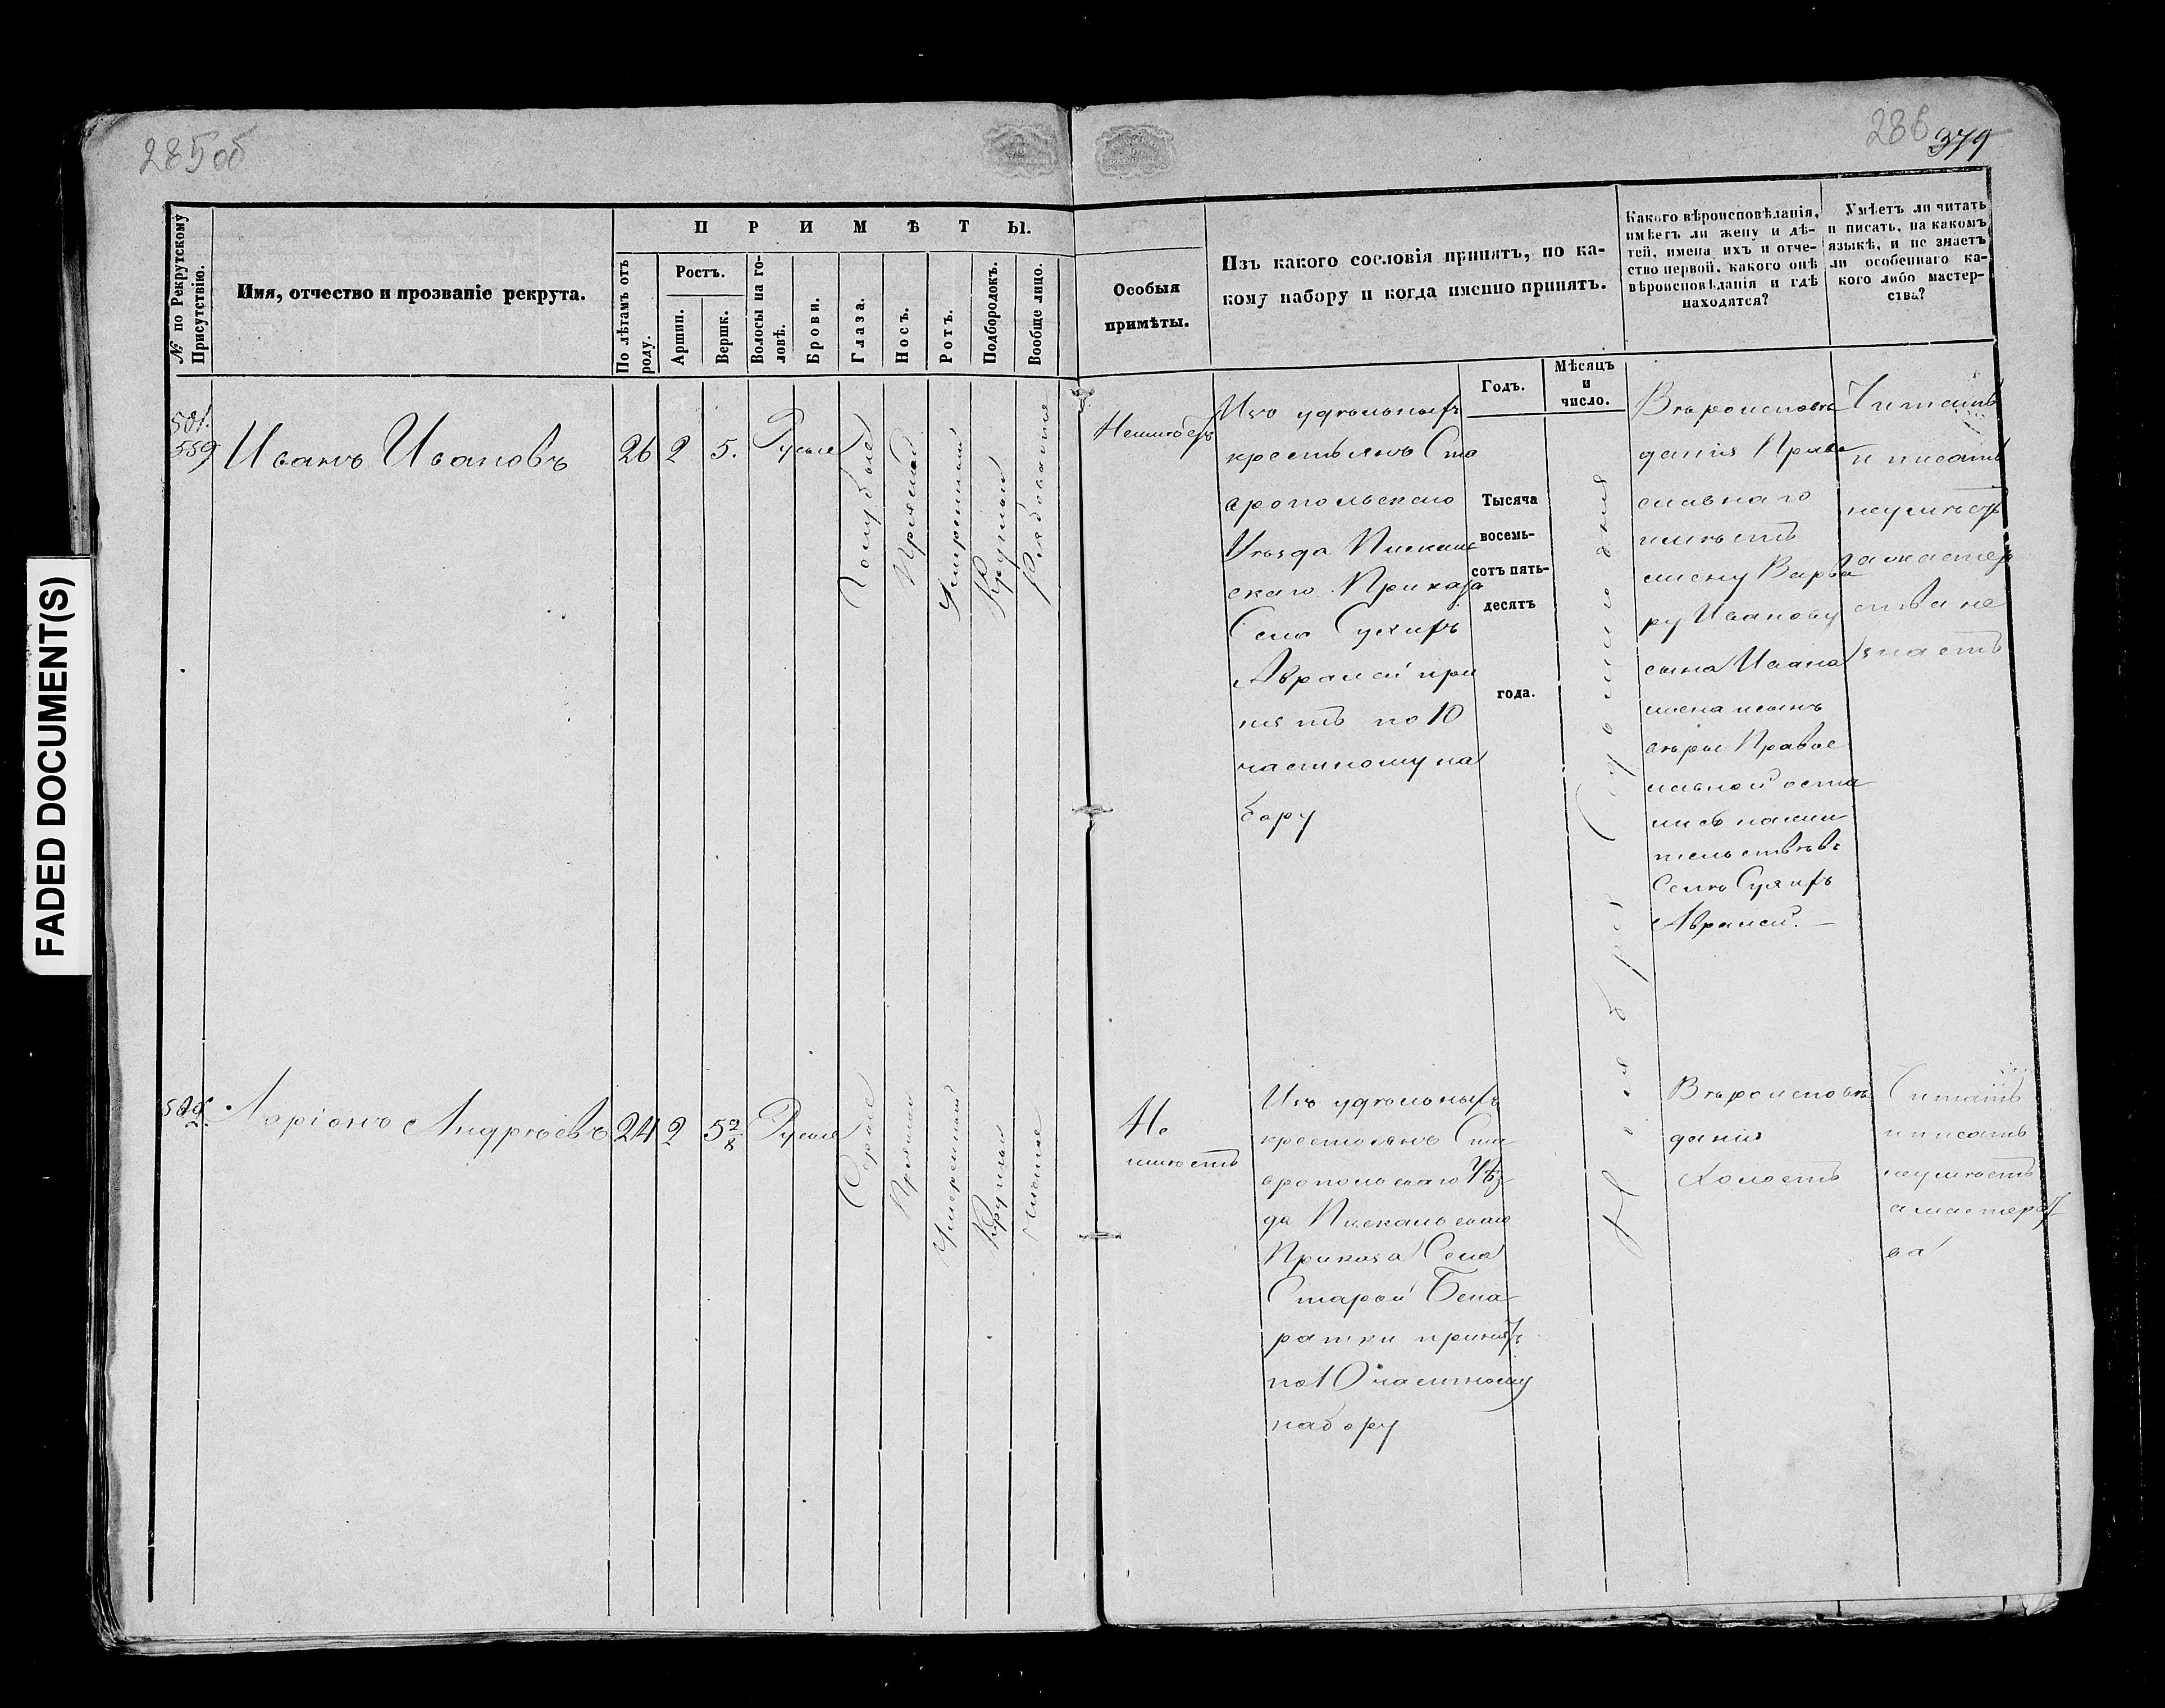 FADED DOCUMENT(S)
285об
286
379
№ по Рекрутскому
Присутствію.
Имя, отчество и прозваніе рекрута.
П Р И М Ѣ Т Ы.
По лѣтамъ отъ
роду.
Ростъ.
Аршин.
Вершк.
Волосы на го-
ловѣ.
Брови.
Глаза.
Носъ.
Ротъ.
Подбородокъ.
Вообще лицо.
Особыя
примѣты.
Изъ какого сословія принятъ, по ка-
кому набору и когда именно принятъ.
Годъ.
Мѣсяцъ
и
число.
Какого вѣроисповѣданія,
имѣетъ ли жену и дѣ-
тей, имена ихъ и отче-
ство первой, какого онѣ
вѣроисповѣданія и гдѣ
находятся?
Умѣетъ ли читать
и писать, на какомъ
языкѣ, и не знаетъ
ли особеннаго ка-
кого либо мастер-
ства?
501.
559
Иванъ Ивановъ
26
2
5.
Русые
Голубые
Прямой
Умѣренный
Круглый
Рябоватое
Неимѣетъ
Изъ удѣльныхъ
крестьянъ Ста
вропольскаго
Уѣзда Пискаль
скаго Приказа
Села Сухихъ
Аврален при
нятъ по 10
частному на
бору
Тысяча
восемь-
сотъ пять-
десятъ
года.
Ноября
дня
Вѣроисповѣ
данія Право
славнаго
имѣетъ
жену Варва
ру Иванову
сына Ивана
жена и сынъ
вѣры Правос
лавной оста
лись нажи
тельствѣ въ
Селѣ Сухихъ
Аврален.
Читать
и писать
неумѣетъ
а мастер
ства не
знаетъ
Ларіонъ Андреѣвъ
24
2
5 2/8
Русые
Серые
Прямой
Умеренный
Круглый
Чистое
Не
имѣетъ
Изъ удѣльныхъ
крестьянъ Ста
вропольскаго Уѣз
да Пискальскаго
Приказа Села
Старой Бена
ратки принятъ
по 10 частному
набору
Вѣроисповѣ
данія
Холостъ
Читать
и писать
неумѣетъ
а мастерст
ва